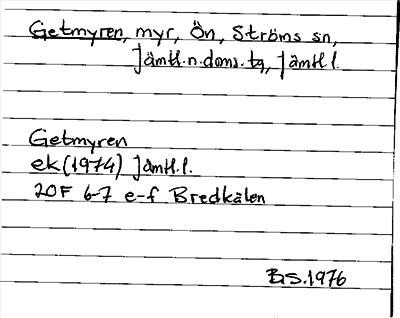 Getmyren, myr, Ön, Ströms sn,
Jämtl.n.doms.tg, Jämtl l.
Getmyren
ek(1974) Jämtl.l.
20F 6-7 e-f Bredkälen
B.S.1976